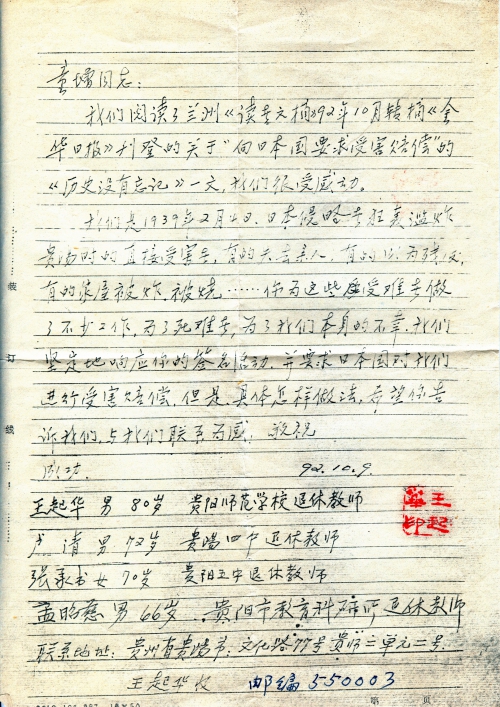 童增同志：
我们阅读了兰州《读者文摘》92年10月转摘《金
华日报》刊登的关于"向日本国要求受害赔偿"的
《历史没有忘记》一文，我们很受感动。
我们是1939年2月4日、日本侵略者狂轰滥炸
贵阳时的直接受害者，有的失去亲人，有的
有的家屋被炸被烧……你为这些受难者做
了不少工作，为了死难者，为了我们本身的不幸，我们
坚定地响应你的签名活动，并要求日本国对我们
进行受害赔偿，但是，具体怎样做法，希望你告
诉我们，与我们联系为感，敬祝
成功。 92.10.9.
王起华 男 80岁 贵阳师范学校退休教师
清 男 72岁 贵阳四中退休教师
张 女 70岁 贵阳五中退休教师
孟昭慈 男 66岁 贵阳市教育科研所退休教师
联系地址：贵州省贵阳市：文化路77号贵师三单元二号
王起华收 邮编 550003
王起华印
装
订
线
第 页